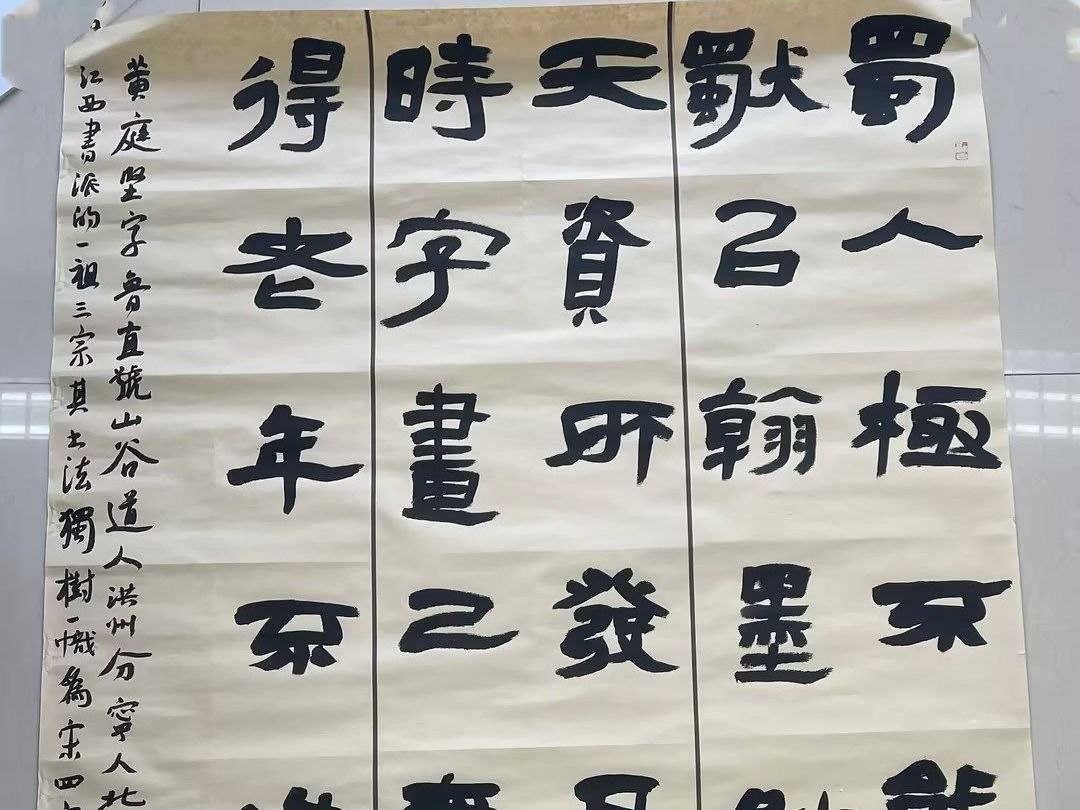 蜀人極不能
獨以翰墨妙
天資所發
時字畫已無
得老年不造
黃庭堅字魯直號山谷道人洪州分寧人北
江西書派的一祖三宗其书法獨樹一幟為宋四